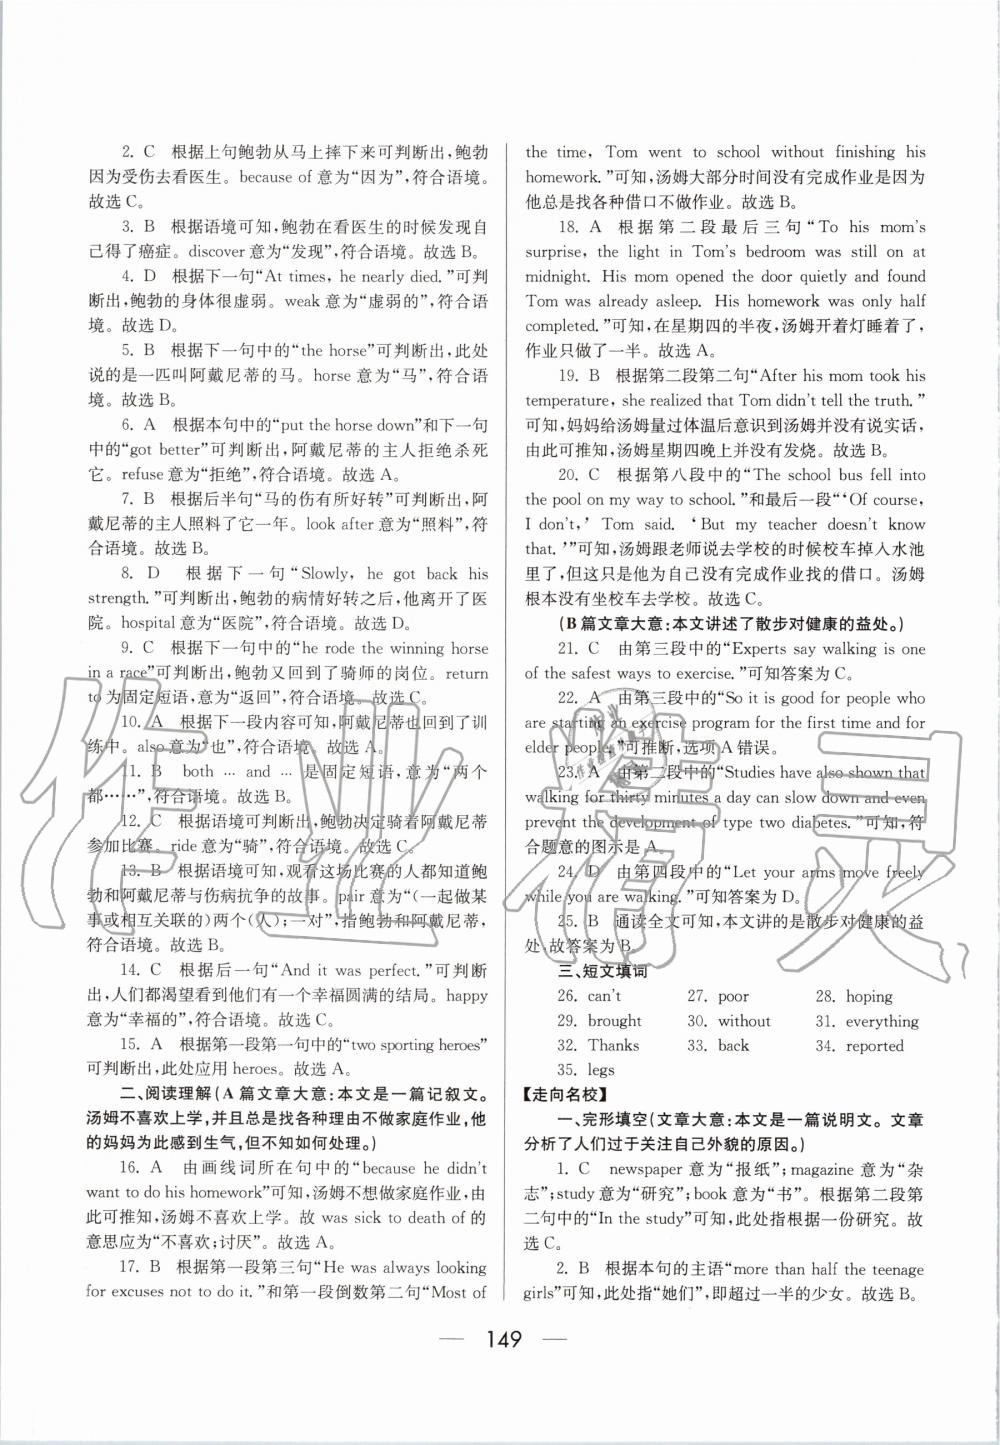 2. C　根据上句鲍勃从马上摔下来可判断出,鲍勃
因为受伤去看医生。because of 意为“因为”,符合语境。
故选C。
3. B　根据语境可知,鲍勃在看医生的时候发现自
己得了癌症。discover 意为“发现”,符合语境。故选B。
4. D　根据下一句“At times, he nearly died.”可判
断出,鲍勃的身体很虚弱。weak 意为“虚弱的”,符合语
境。故选D。
5. B　根据下一句中的“the horse”可判断出,此处
说的是一匹叫阿戴尼蒂的马。horse 意为“马”,符合语
境。故选B。
6. A　根据本句中的“put the horse down”和下一句
中的“got better”可判断出,阿戴尼蒂的主人拒绝杀死
它。refuse 意为“拒绝”,符合语境。故选A。
7. B　根据后半句“马的伤有所好转”可判断出,阿
戴尼蒂的主人照料了它一年。look after 意为“照料”,符
合语境。故选B。
8. D　根据下一句“Slowly, he got back his
strength.”可判断出,鲍勃的病情好转之后,他离开了医
院。hospital 意为“医院”,符合语境。故选D。
9. C　根据下一句中的“he rode the winning horse
in a race”可判断出,鲍勃又回到了骑师的岗位。return
to 为固定短语,意为“返回”,符合语境。故选C。
10. A　根据下一段内容可知,阿戴尼蒂也回到了训
练中。also 意为“也”,符合语境。故选A。
11. B　both … and … 是固定短语,意为“两个
都……”,符合语境。故选B。
12. C　根据语境可判断出,鲍勃决定骑着阿戴尼蒂
参加比赛。ride 意为“骑”,符合语境。故选C。
13. B　根据语境可知,观看这场比赛的人都知道鲍
勃和阿戴尼蒂与伤病抗争的故事。pair 意为“(一起做某
事或相互关联的)两个(人);一对”,指鲍勃和阿戴尼蒂,
符合语境。故选B。
14. C　根据后一句“And it was perfect.”可判断
出,人们都渴望看到他们有一个幸福圆满的结局。happy
意为“幸福的”,符合语境。故选C。
15. A　根据第一段第一句中的“two sporting heroes”
可判断出,此处应用 heroes。故选A。
二、阅读理解(A篇文章大意:本文是一篇记叙文。
汤姆不喜欢上学,并且总是找各种理由不做家庭作业,他
的妈妈为此感到生气,但不知如何处理。)
16. A　由画线词所在句中的“because he didn't
want to do his homework”可知,汤姆不想做家庭作业,由
此可推知,汤姆不喜欢上学。故 was sick to death of 的
意思应为“不喜欢;讨厌”。故选A。
17. B　根据第一段第三句“He was always looking
for excuses not to do it.”和第一段倒数第二句“Most of
the time, Tom went to school without finishing his
homework.”可知,汤姆大部分时间没有完成作业是因为
他总是找各种借口不做作业。故选B。
18. A　根据第二段最后三句“To his mom's
surprise, the light in Tom's bedroom was still on at
midnight. His mom opened the door quietly and found
Tom was already asleep. His homework was only half
completed.”可知,在星期四的半夜,汤姆开着灯睡着了,
作业只做了一半。故选A。
19. B　根据第二段第二句“After his mom took his
temperature, she realized that Tom didn't tell the truth.”
可知,妈妈给汤姆量过体温后意识到汤姆并没有说实话,
由此可推知,汤姆星期四晚上并没有发烧。故选B。
20. C　根据第八段中的“The school bus fell into
the pool on my way to school.”和最后一段“‘Of course,
I don't,’ Tom said. ‘But my teacher doesn't know
that.’”可知,汤姆跟老师说去学校的时候校车掉入水池
里了,但这一切只是他为自己没有完成作业找的借口。汤姆
根本没有坐校车去学校。故选C。
(B篇文章大意:本文讲述了散步对健康的益处。)
21. C　由第三段中的“Experts say walking is one
of the safest ways to exercise.”可知答案为C。
22. A　由第三段中的“So it is good for people who
are starting an exercise program for the first time and for
elder people.”可推断,选项A错误。
23. A　由第二段中的“Studies have also shown that
walking for thirty minutes a day can slow down and even
prevent the development of type two diabetes.”可知,符
合题意的图示是A。
24. D　由第四段中的“Let your arms move freely
while you are walking.”可知答案为D。
25. B　通读全文可知,本文讲的是散步对健康的益
处,故答案为B。
三、短文填词
26. can't　27. poor　28. hoping
29. brought　30. without　31. everything
32. Thanks　33. back　34. reported
35. legs
【走向名校】
一、完形填空(文章大意:本文是一篇说明文。文章
分析了人们过于关注自己外貌的原因。)
1. C　newspaper 意为“报纸”;magazine 意为“杂
志”;study 意为“研究”;book 意为“书”。根据第二段第
二句中的“In the study”可知,此处指根据一份研究。故
选C。
2. B　根据本句的主语“more than half the teenage
girls”可知,此处指“她们”,即超过一半的少女。故选B。
149
作业精灵